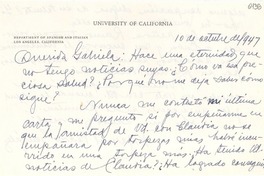 UNIVERSITY OF CALIFORNIA
DEPARTMENT OF SPANISH AND ITALIAN
LOS ANGELES, CALIFORNIA
10 de octubre de 1947
Querida Gabriela: Hace una eternidad que
no tengo noticias suyas. ¿Cómo va su pre-
ciosa salud? ¿Por qué no me deja saber cómo
sigue?
Nunca me contestó mi última
carta y me pregunto si por empeñarme en
que la amistad de Vd. con Claudia no se
empañara por torpezas mías, habré incu-
rrido en una torpeza más. ¿Ha tenido
noticias de Claudia? ¿Ha logrado conseguir